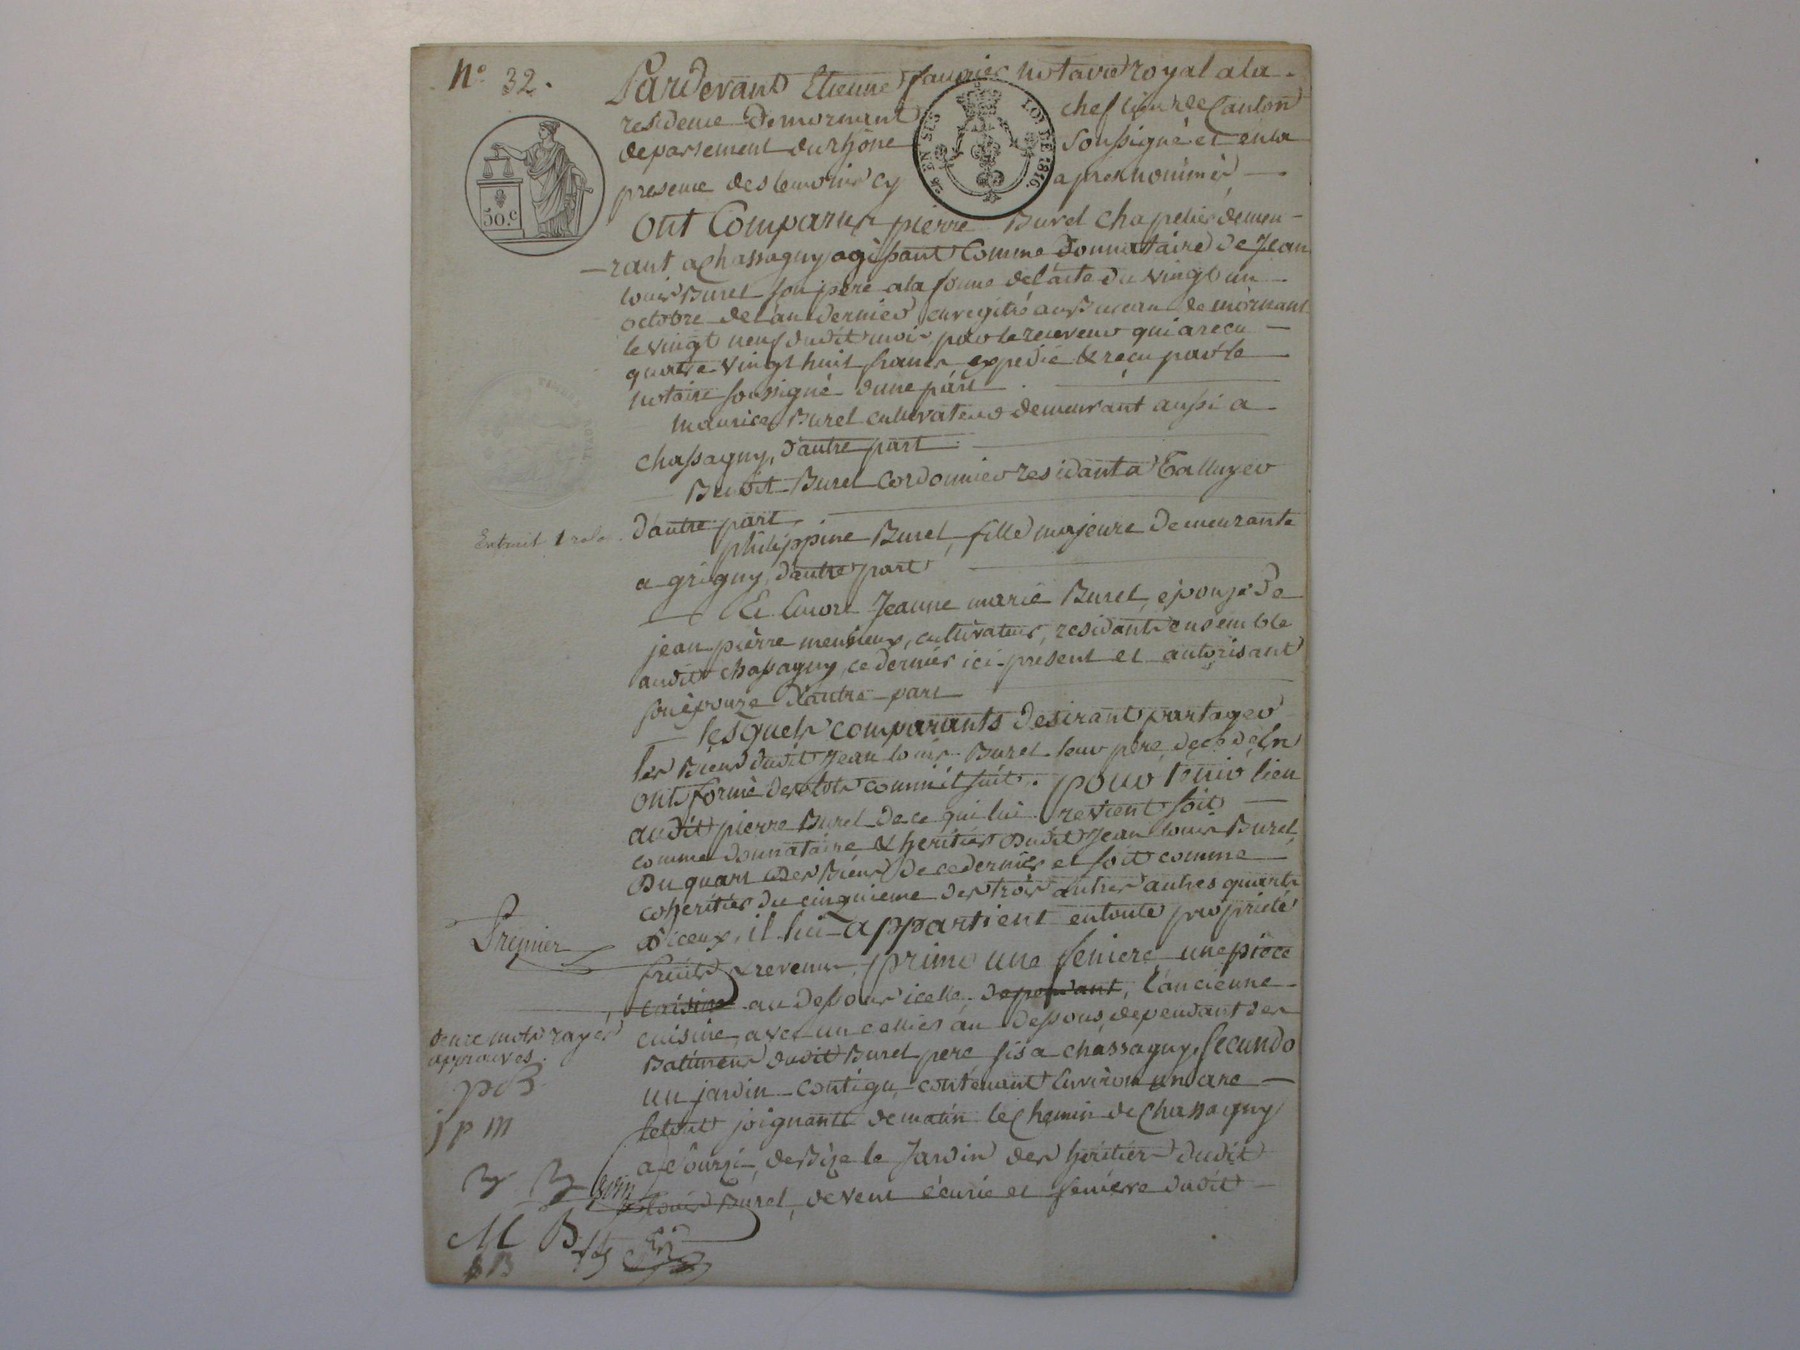 N° 32.
Pardevant Etienne faurier notaire royal a la
residence de mornant chef lieu de Canton
departement du rhône soussigné et en la
presence des temoins cy apres nommés,
LOI DE 1816.
50.c
Ont Comparus pierre Burel chapelier demeu-
rant a chassagny agissant comme donnataire de Jean
louis Burel son pere a la forme de l'acte du vingt un
octobre de l'an dernier, enregitré au Bureau de mornant
le vingt neuf dudit mois par le receveur qui a recu
quatre vingt huit francs, expedié & recu par le
notaire soussigné d'une part
Maurice Burel cultivateur demeurant aussi a
chassagny, d'autre part.
Benoit Burel Cordonnier residant a Talluyer
d'autre part.
Extrait 1 role.
philippine Burel, fille majeure demeurante
a grigny, d'autre part
Et Encore Jeanne marie Burel, epouse de
jean pierre cultivateur, residants ensemble
audit chassagny, ce dernier ici present et autorisant
son epouze d'autre part
lesquels comparants desirant partager
les Biens dudit Jean louis Burel leur père, decedé, En
ont formé des lots comme il suit. pour tenir lieu
audit pierre Burel de ce qui lui revient soit
comme donnataire & heritier dudit Jean louis Burel,
du quart des Biens de ce dernier et soit comme
coheritier du cinquieme des trois autres autres quarts
d'iceux, il lui appartient en toute proprieté
Premier
fruits & revenus, primo une feniere une pièce
cuisine au dessous icelle dependant, l'ancienne
cuisine, avec un cellier au dessous, dependant des
Batimens dudit Burel pere sis a chassagny, Secundo
un jardin contigu, contenant Environ un are
le tout joignant de matin le Chemin de Chassagny
a de Bize le Jardin des héritiers dudit
louis Burel, de vent écurie et feniere dudit
mots rayés
approuvés.
j p m
M B